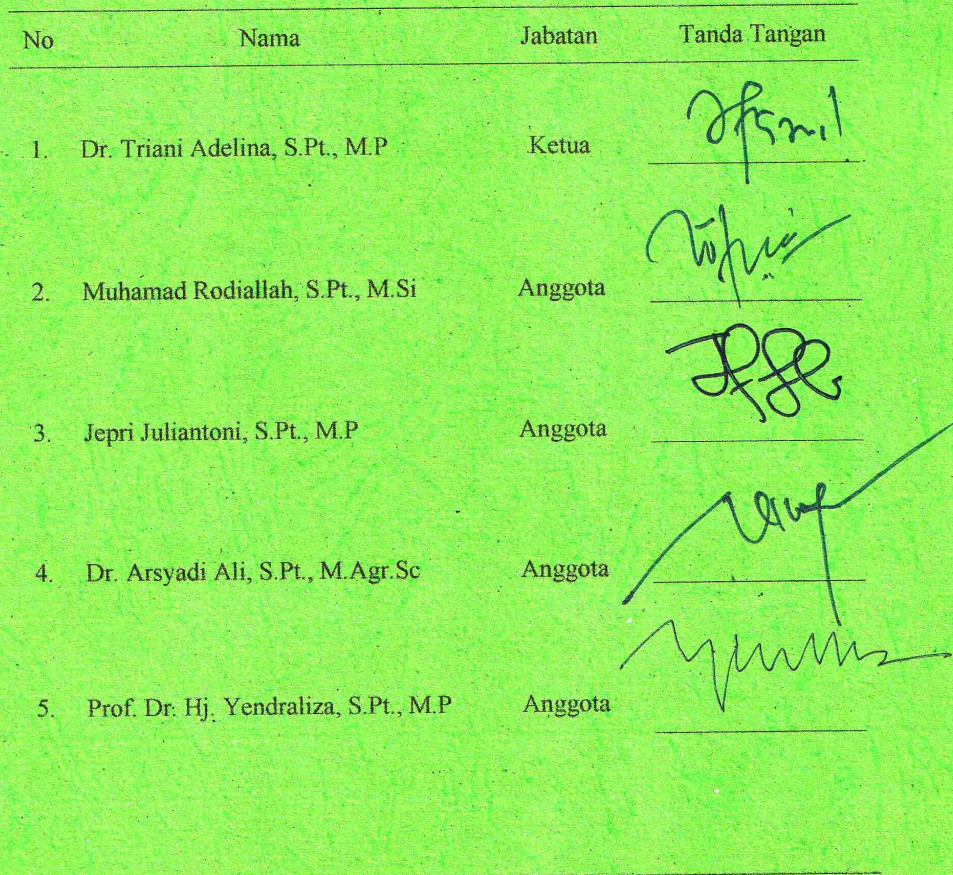 No Nama Jabatan Tanda Tangan
1. Dr. Triani Adelina, S.Pt., M.P Ketua
2. Muhamad Rodiallah, S.Pt., M.Si Anggota
3. Jepri Juliantoni, S.Pt., M.P Anggota
4. Dr. Arsyadi Ali, S.Pt., M.Agr.Sc Anggota
5. Prof. Dr. Hj. Yendraliza, S.Pt., M.P Anggota